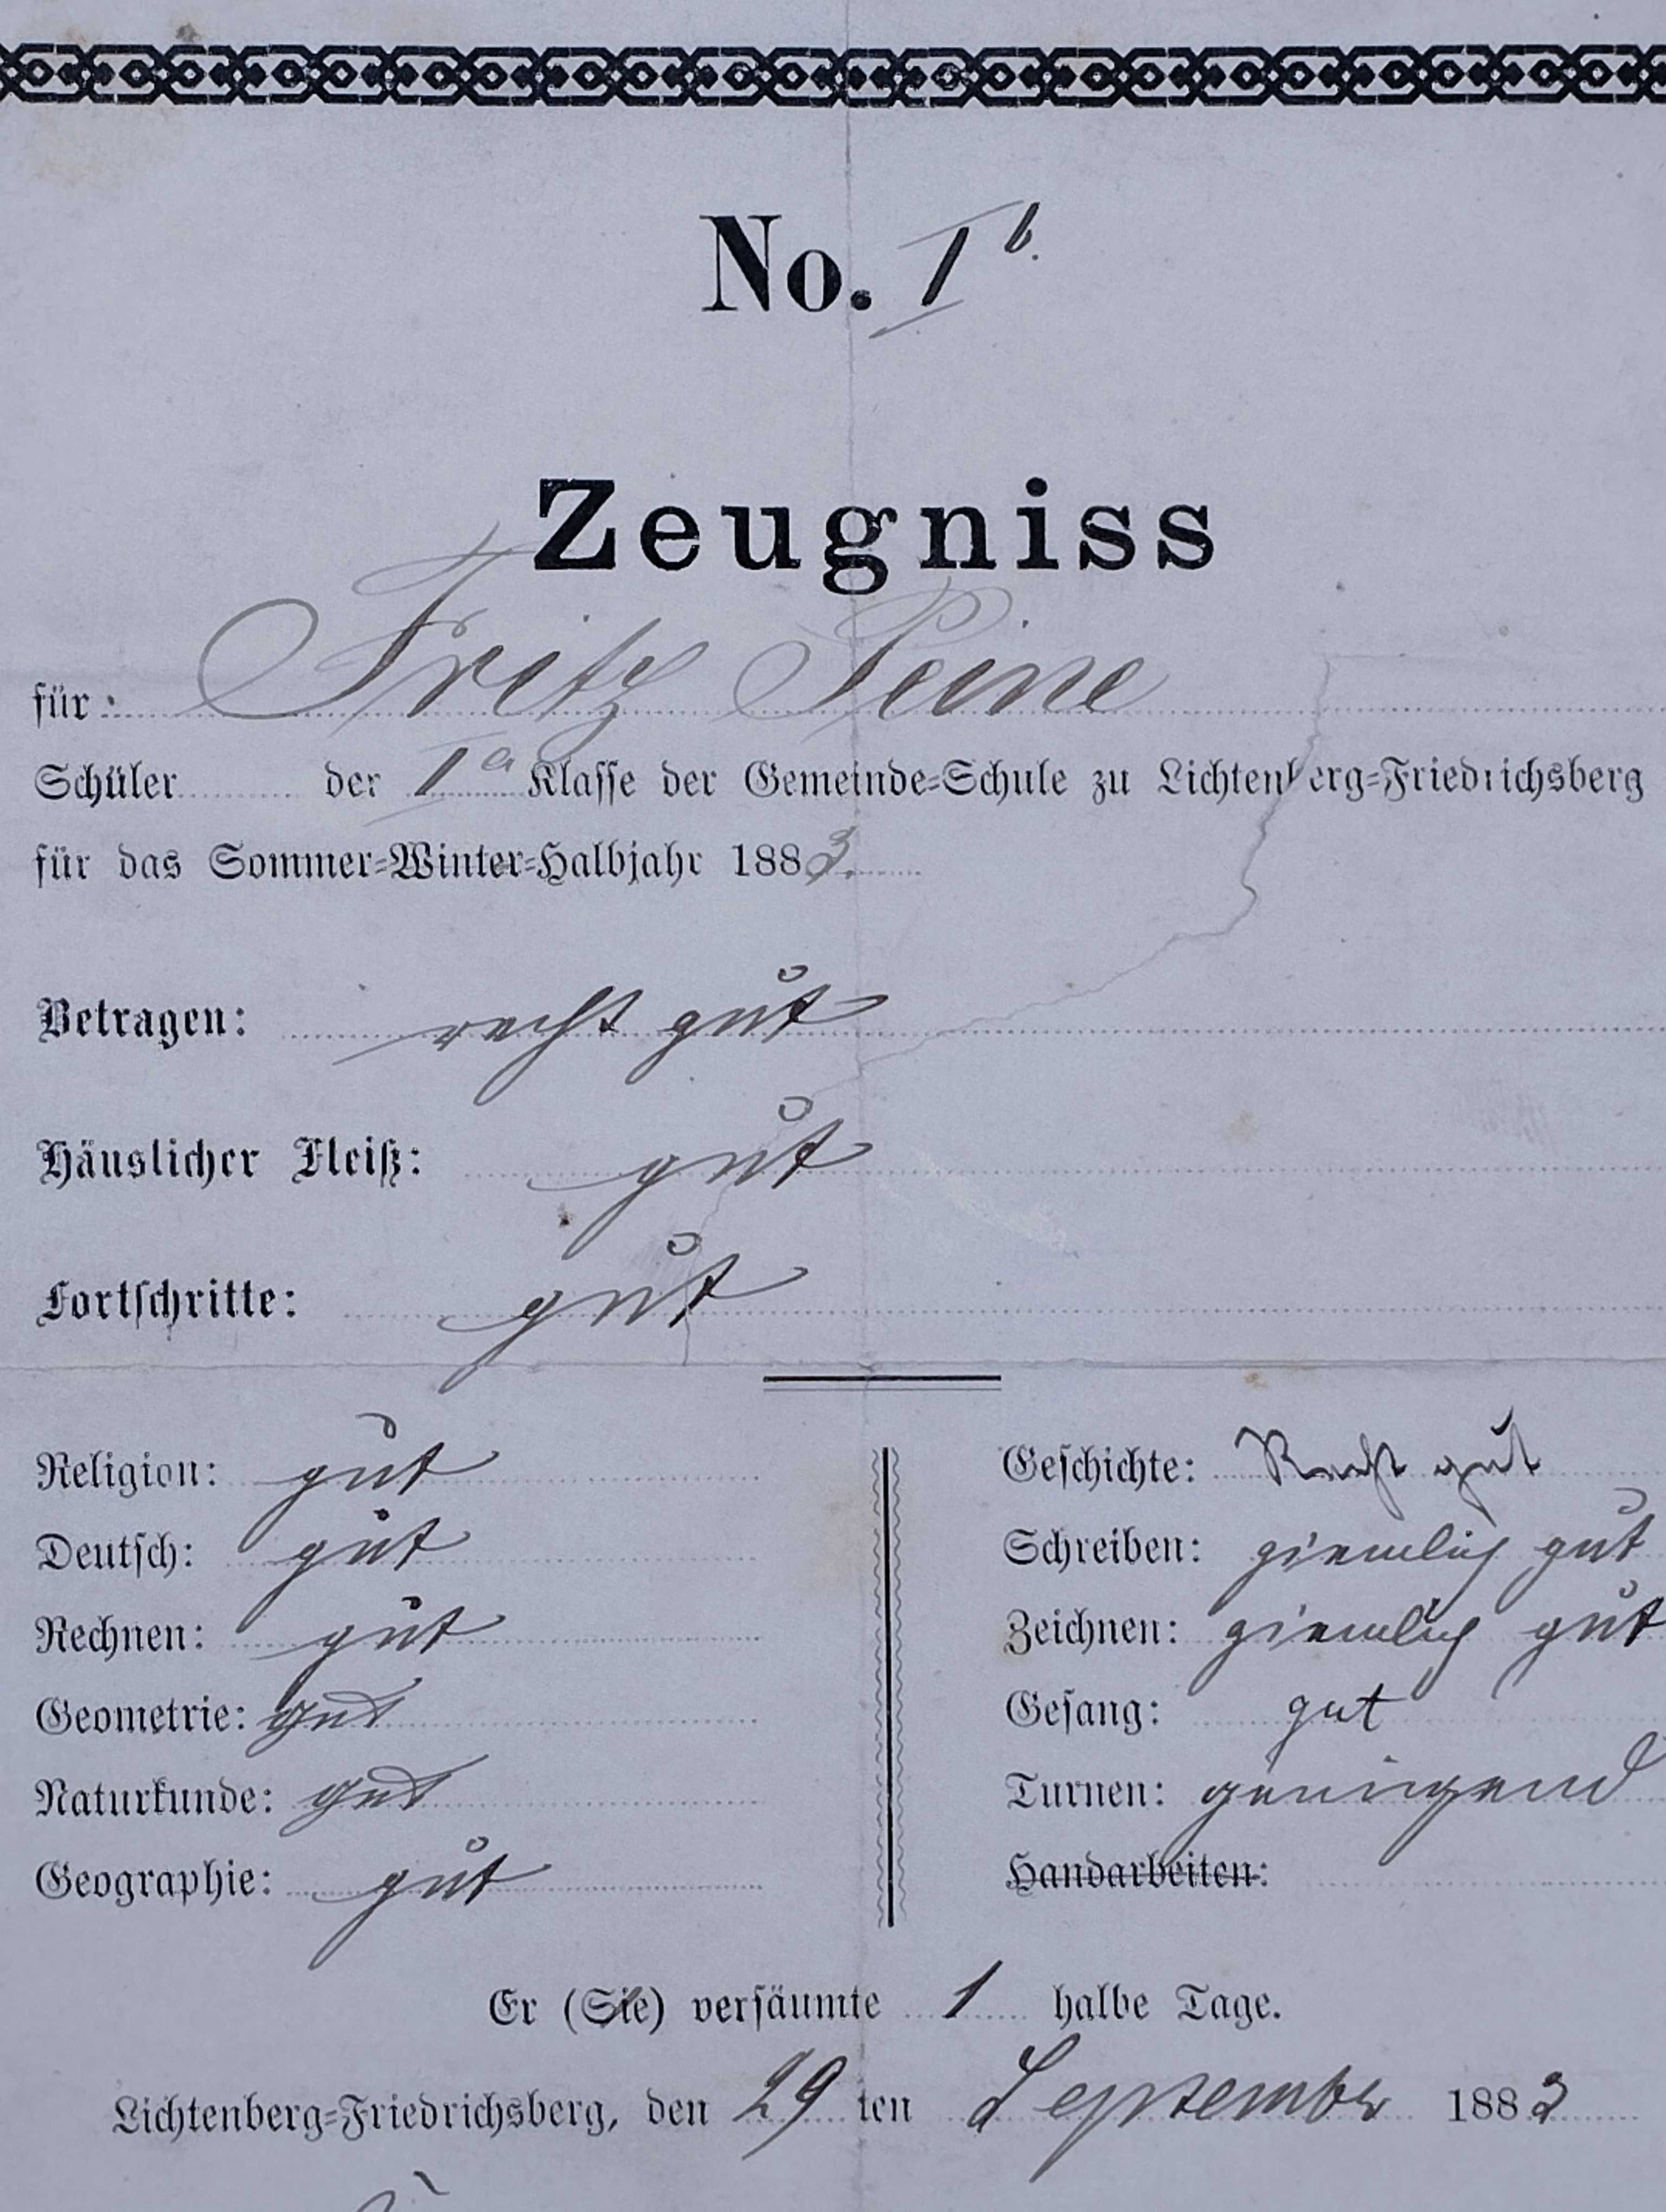 No. I b.
Zeugniss
für: Fritz Peine
Schüler der Ia Klasse der Gemeinde-Schule zu Lichtenberg-Friedrichsberg
für das Sommer-Winter-Halbjahr 1883.
Betragen: recht gut
Häuslicher Fleiß: gut
Fortschritte: gut
Religion: gut
Deutsch: gut
Rechnen: gut
Geometrie: gut
Naturkunde: gut
Geographie: gut
Geschichte: Recht gut
Schreiben: ziemlich gut
Zeichnen: ziemlich gut
Gesang: gut
Turnen: genügend
Handarbeiten:
Er (Sie) versäumte 1 halbe Tage.
Lichtenberg-Friedrichsberg, den 29 ten September 1883